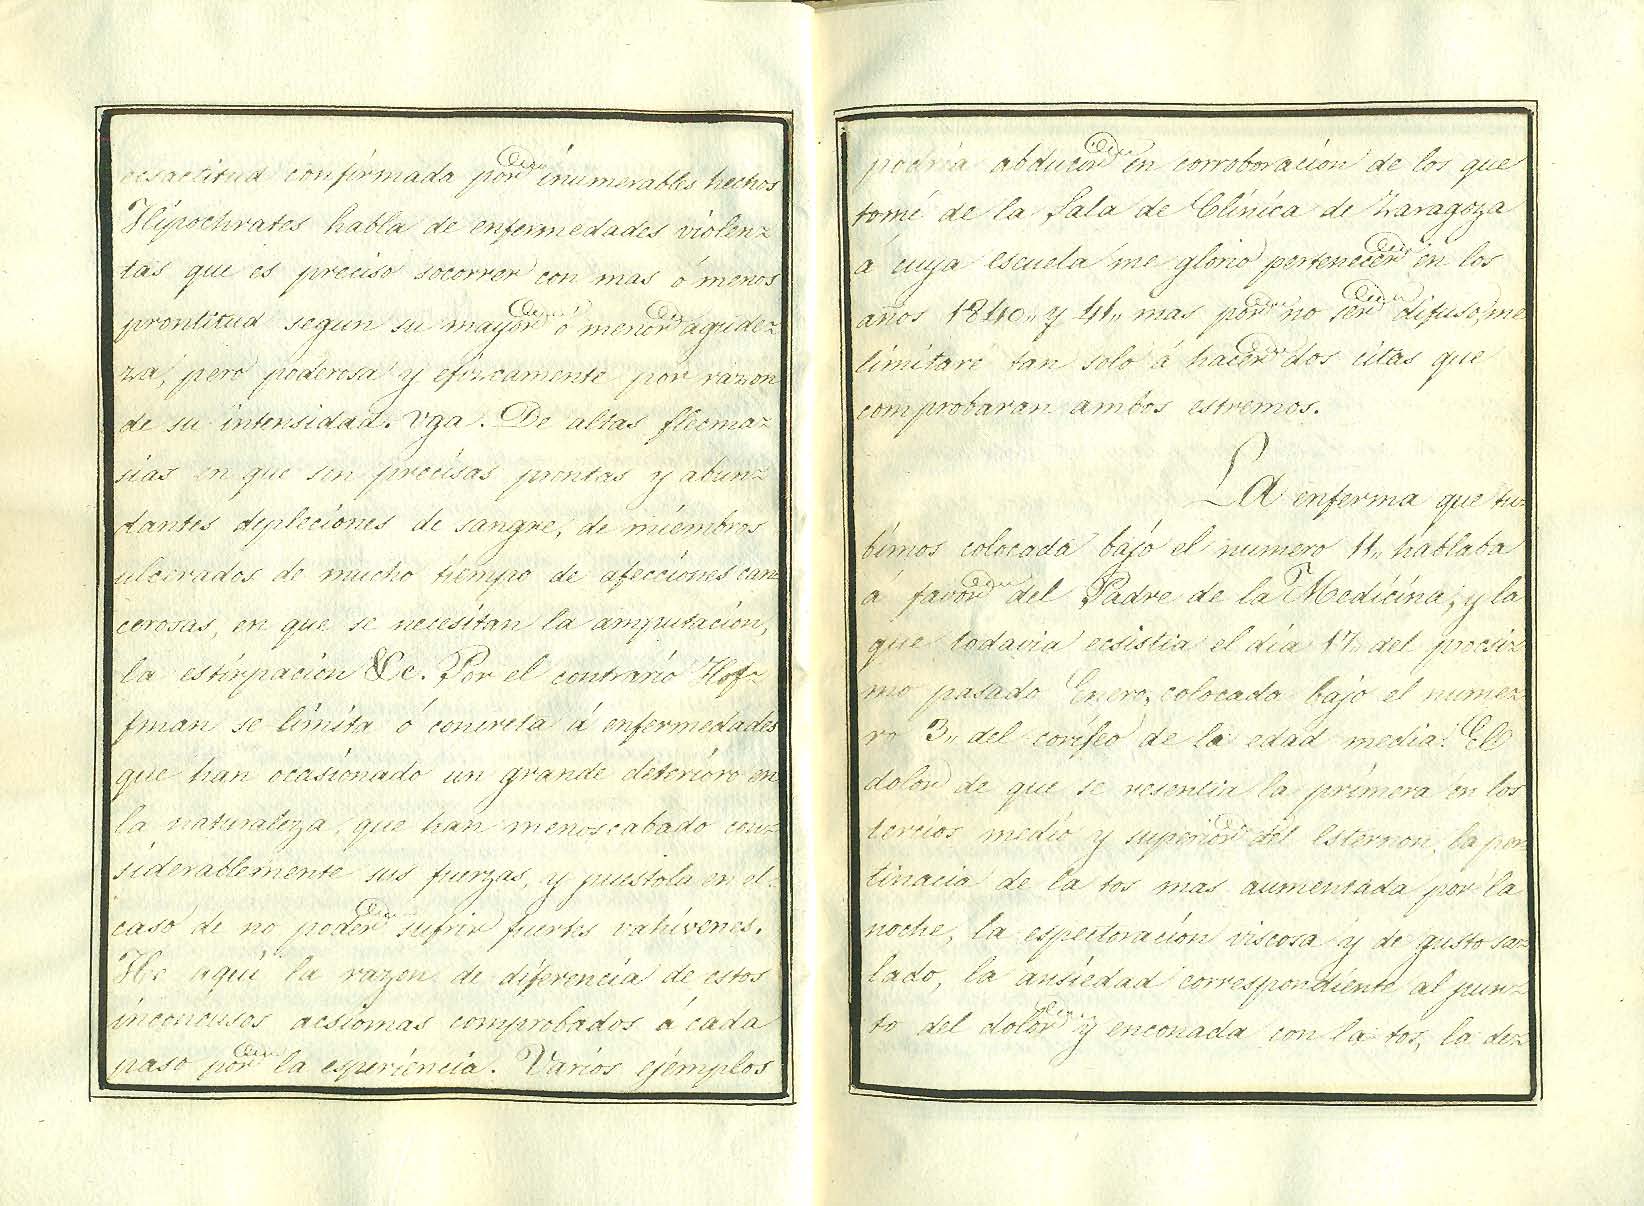 ecsactitud confirmada por inumerables hechos
Hipochrates habla de enfermedades violen=
tas que es preciso socorrer con mas ó menos
prontitud segun su mayor ó menor agude=
za, pero poderosa y eficzcamente por razon
de su intensidad. vga. De altas flecma=
sias en que son precisas prontas y abun=
dantes depleciones de sangre, de miembros
ulcerados de mucho tiempo de afecciones can=
cerosas, en que se necesitan la amputación,
la estirpación &c. Por el contrario Hof=
fman se limita ó concreta á enfermedades
que han ocasionado un grande deterioro en
la naturaleza, que han menoscabado con=
siderablemente sus fuerzas, y puestola en el
caso de no poder sufrir fuertes vahivenes.
He aqui la razon de diferencia de estos
inconcusos acsiomas comprobados á cada
paso por la esperiencia. Varios ejemplos
podria abducir en corroboracion de los que
tomé de la Sala de Clinica de Zaragoza
á cuya escuela me glorio pertenecer en los
años 1840,, y 41,, mas por no ser difuso, me
limitaré tan solo á hacer dos citas que
comprobaran ambos estremos.
La enferma que tu=
bimos colocada bajo el numero 11,, hablaba
á favor del Padre de la Medicina; y la
que todavia ecsistia el dia 17,, del procsi=
mo pasado Enero, colocada bajo el nume=
ro 3,, del corifeo de la edad media. El
dolor de que se resentia la primera en los
tercios medio y superior del esternon, la per
tinacia de la tos mas aumentada por la
noche, la espectoración viscosa y de gusto sa=
lado, la ansiedad correspondiente al pun=
to del dolor y enconada con la tos, la de=